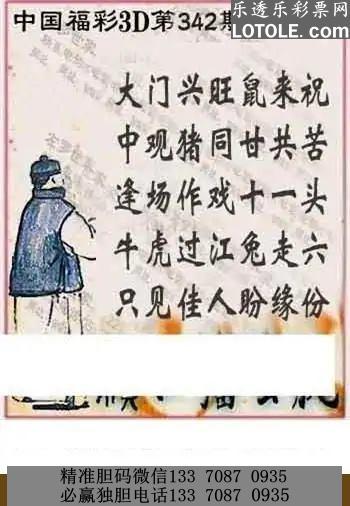 乐透乐彩票网
LOTOLE.COM
中国福彩3D第342期
大门兴旺鼠来祝
中观猪同甘共苦
逢场作戏十一头
牛虎过江兔走六
只见佳人盼缘份
精准胆码微信133 7087 0935
必赢独胆电话133 7087 0935